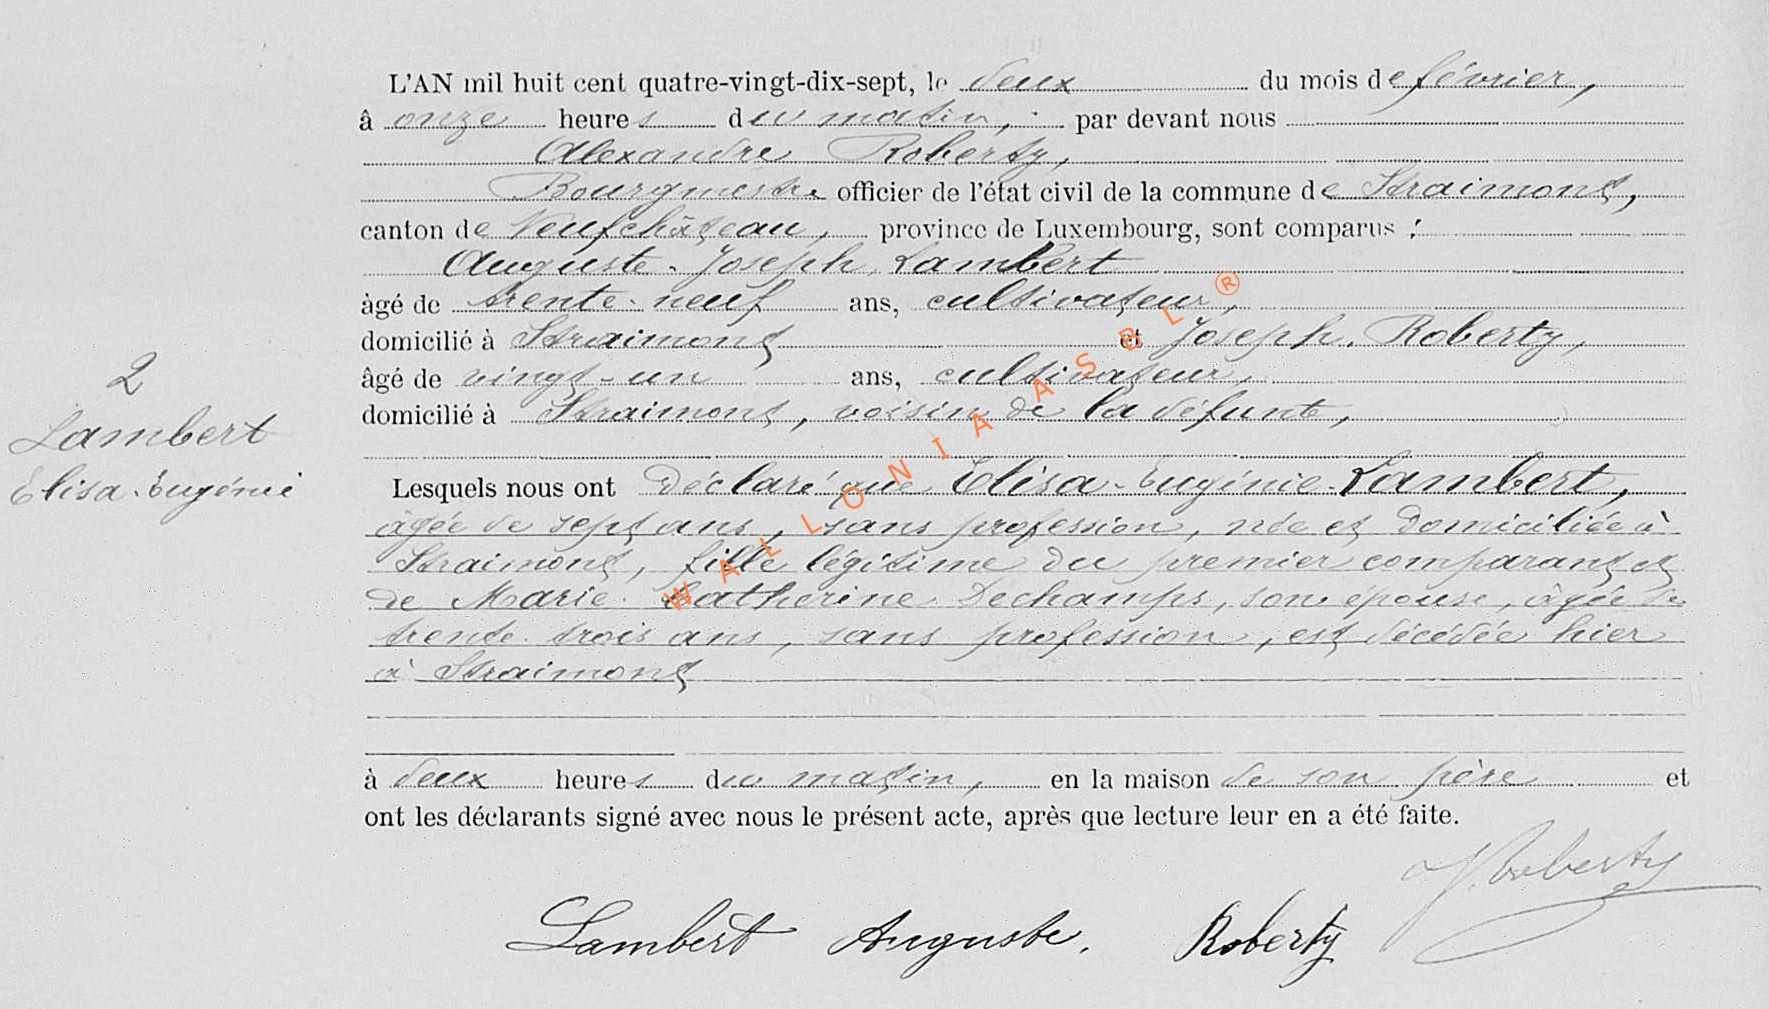 L'AN mil huit cent quatre-vingt-dix-sept, le deux du mois de février,
à onze heures du matin, par devant nous
Alexandre Roberty,
Bourgmestre officier de l'état civil de la commune de Straimont,
canton de Neufchâteau, province de Luxembourg, sont comparus :
Auguste-Joseph Lambert
âgé de trente-neuf ans, cultivateur,
domicilié à Straimont et Joseph Roberty,
âgé de vingt-un ans, cultivateur,
domicilié à Straimont, voisin de la défunte,
2
Lambert
Elisa-Eugénie
Lesquels nous ont déclaré que Elisa-Eugénie Lambert,
âgée de sept ans, sans profession, née et domiciliée à
Straimont, fille légitime du premier comparant et
de Marie-Catherine Dechamps, son épouse, âgée de
trente-trois ans, sans profession, est décédée hier
à Straimont
à deux heures du matin, en la maison de son père et
ont les déclarants signé avec nous le présent acte, après que lecture leur en a été faite.
J. Roberty
Lambert Auguste. Roberty
WALLONIA ASBL ®